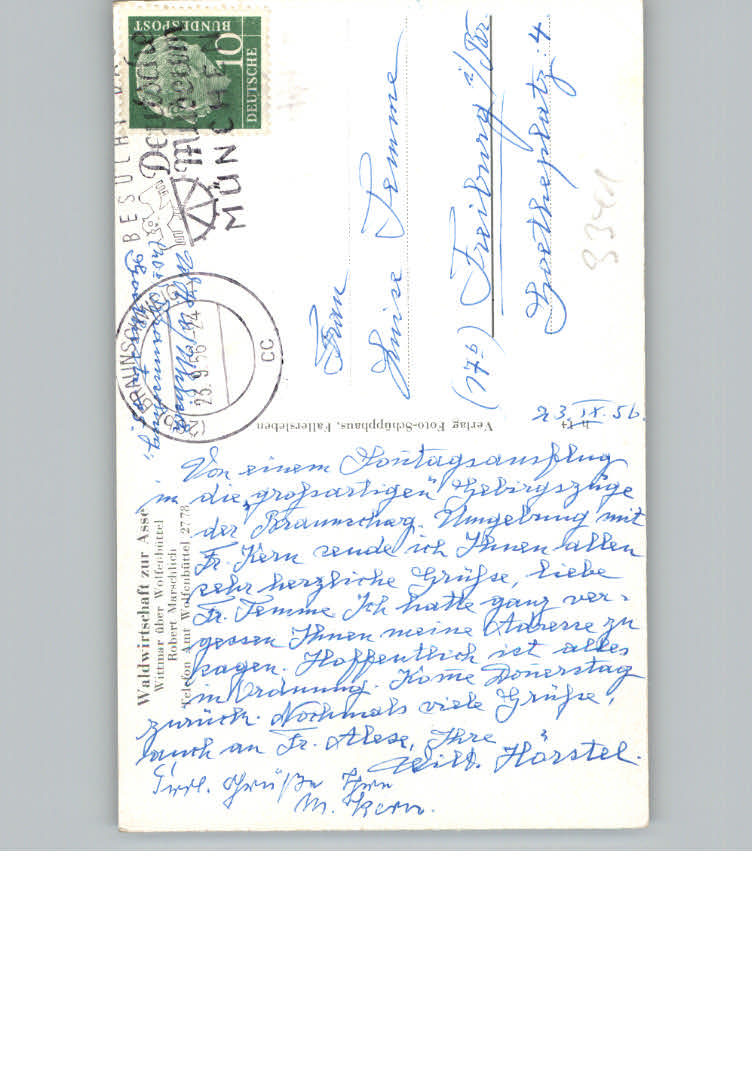 DEUTSCHE
BUNDESPOST
10
BESUCHT DAS
Deutsche
Museum
MÜNCHEN
BRAUNSCHWEIG
23.9.56-24
cc
Frau
Luise Temme
(17b) Freiburg i/Br.
Goetheplatz 4
3341
Verlag Foto-Schüpphaus, Fallersleben
Waldwirtschaft zur Asse
Wittmar über Wolfenbüttel
Robert Marschlich
Telefon Amt Wolfenbüttel 27 78
23.IX.56.
Von einem Sontagsausflug
in die „großartigen" Gebirgszüge
der Braunschwg. Umgebung mit
Fr. Kern sende ich Ihnen allen
sehr herzliche Grüße, liebe
Fr. Temme Ich hatte ganz ver-
gessen Ihnen meine Adresse zu
sagen. Hoffentlich ist alles
in Ordnung. Kome Donerstag
zurück. Nochmals viele Grüße,
auch an Fr. Ihre
Hörstel.
Grüße
M. Kern.